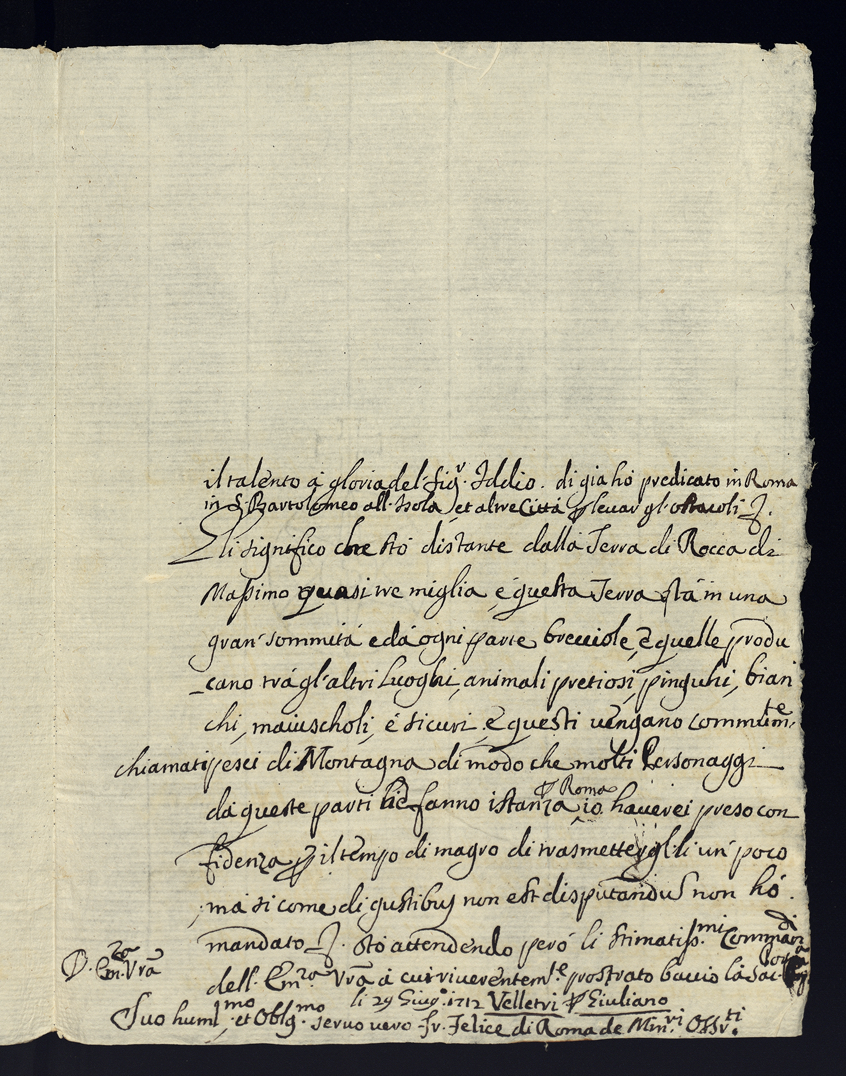 il talento á gloria del Sig.r Iddio. di gia hó predicato in Roma
in S. Bartolomeo all. Isola, et altre Città p levar gl. ostacoli
Li significo che stó distante dalla Terra di Rocca di
Massimo quasi tre miglia, é questa Terra stá in una
gran' sommitá e dá ogni parte brecciole, e quelle produ
cano trá gl'altri Luoghi, animali pretiosi, pinguhi, bian
chi, maiuscholi, é sicuri, e questi vengano communem.te
chiamati pesci di Montagna di modo che molti Personaggi
dá queste parti ne fanno istanza p Roma io haverei preso con
fidenza p il tempo di magro di trasmettergli li un' poco
; má si come di gustibus non est disputandu non hó.
mandato stó attendendo peró li stimatiss.mi Commandi
dell. Em.za Vrã á cui riverentem.te prostrato baccio la Sac. Porpora
D. Em.za Vrã
li 29 Giug.o 1712 Velletri p Giuliano
Suo huml.mo, et Oblg.mo servo vero fr. Felice di Roma de Min.ri Osserv.ti